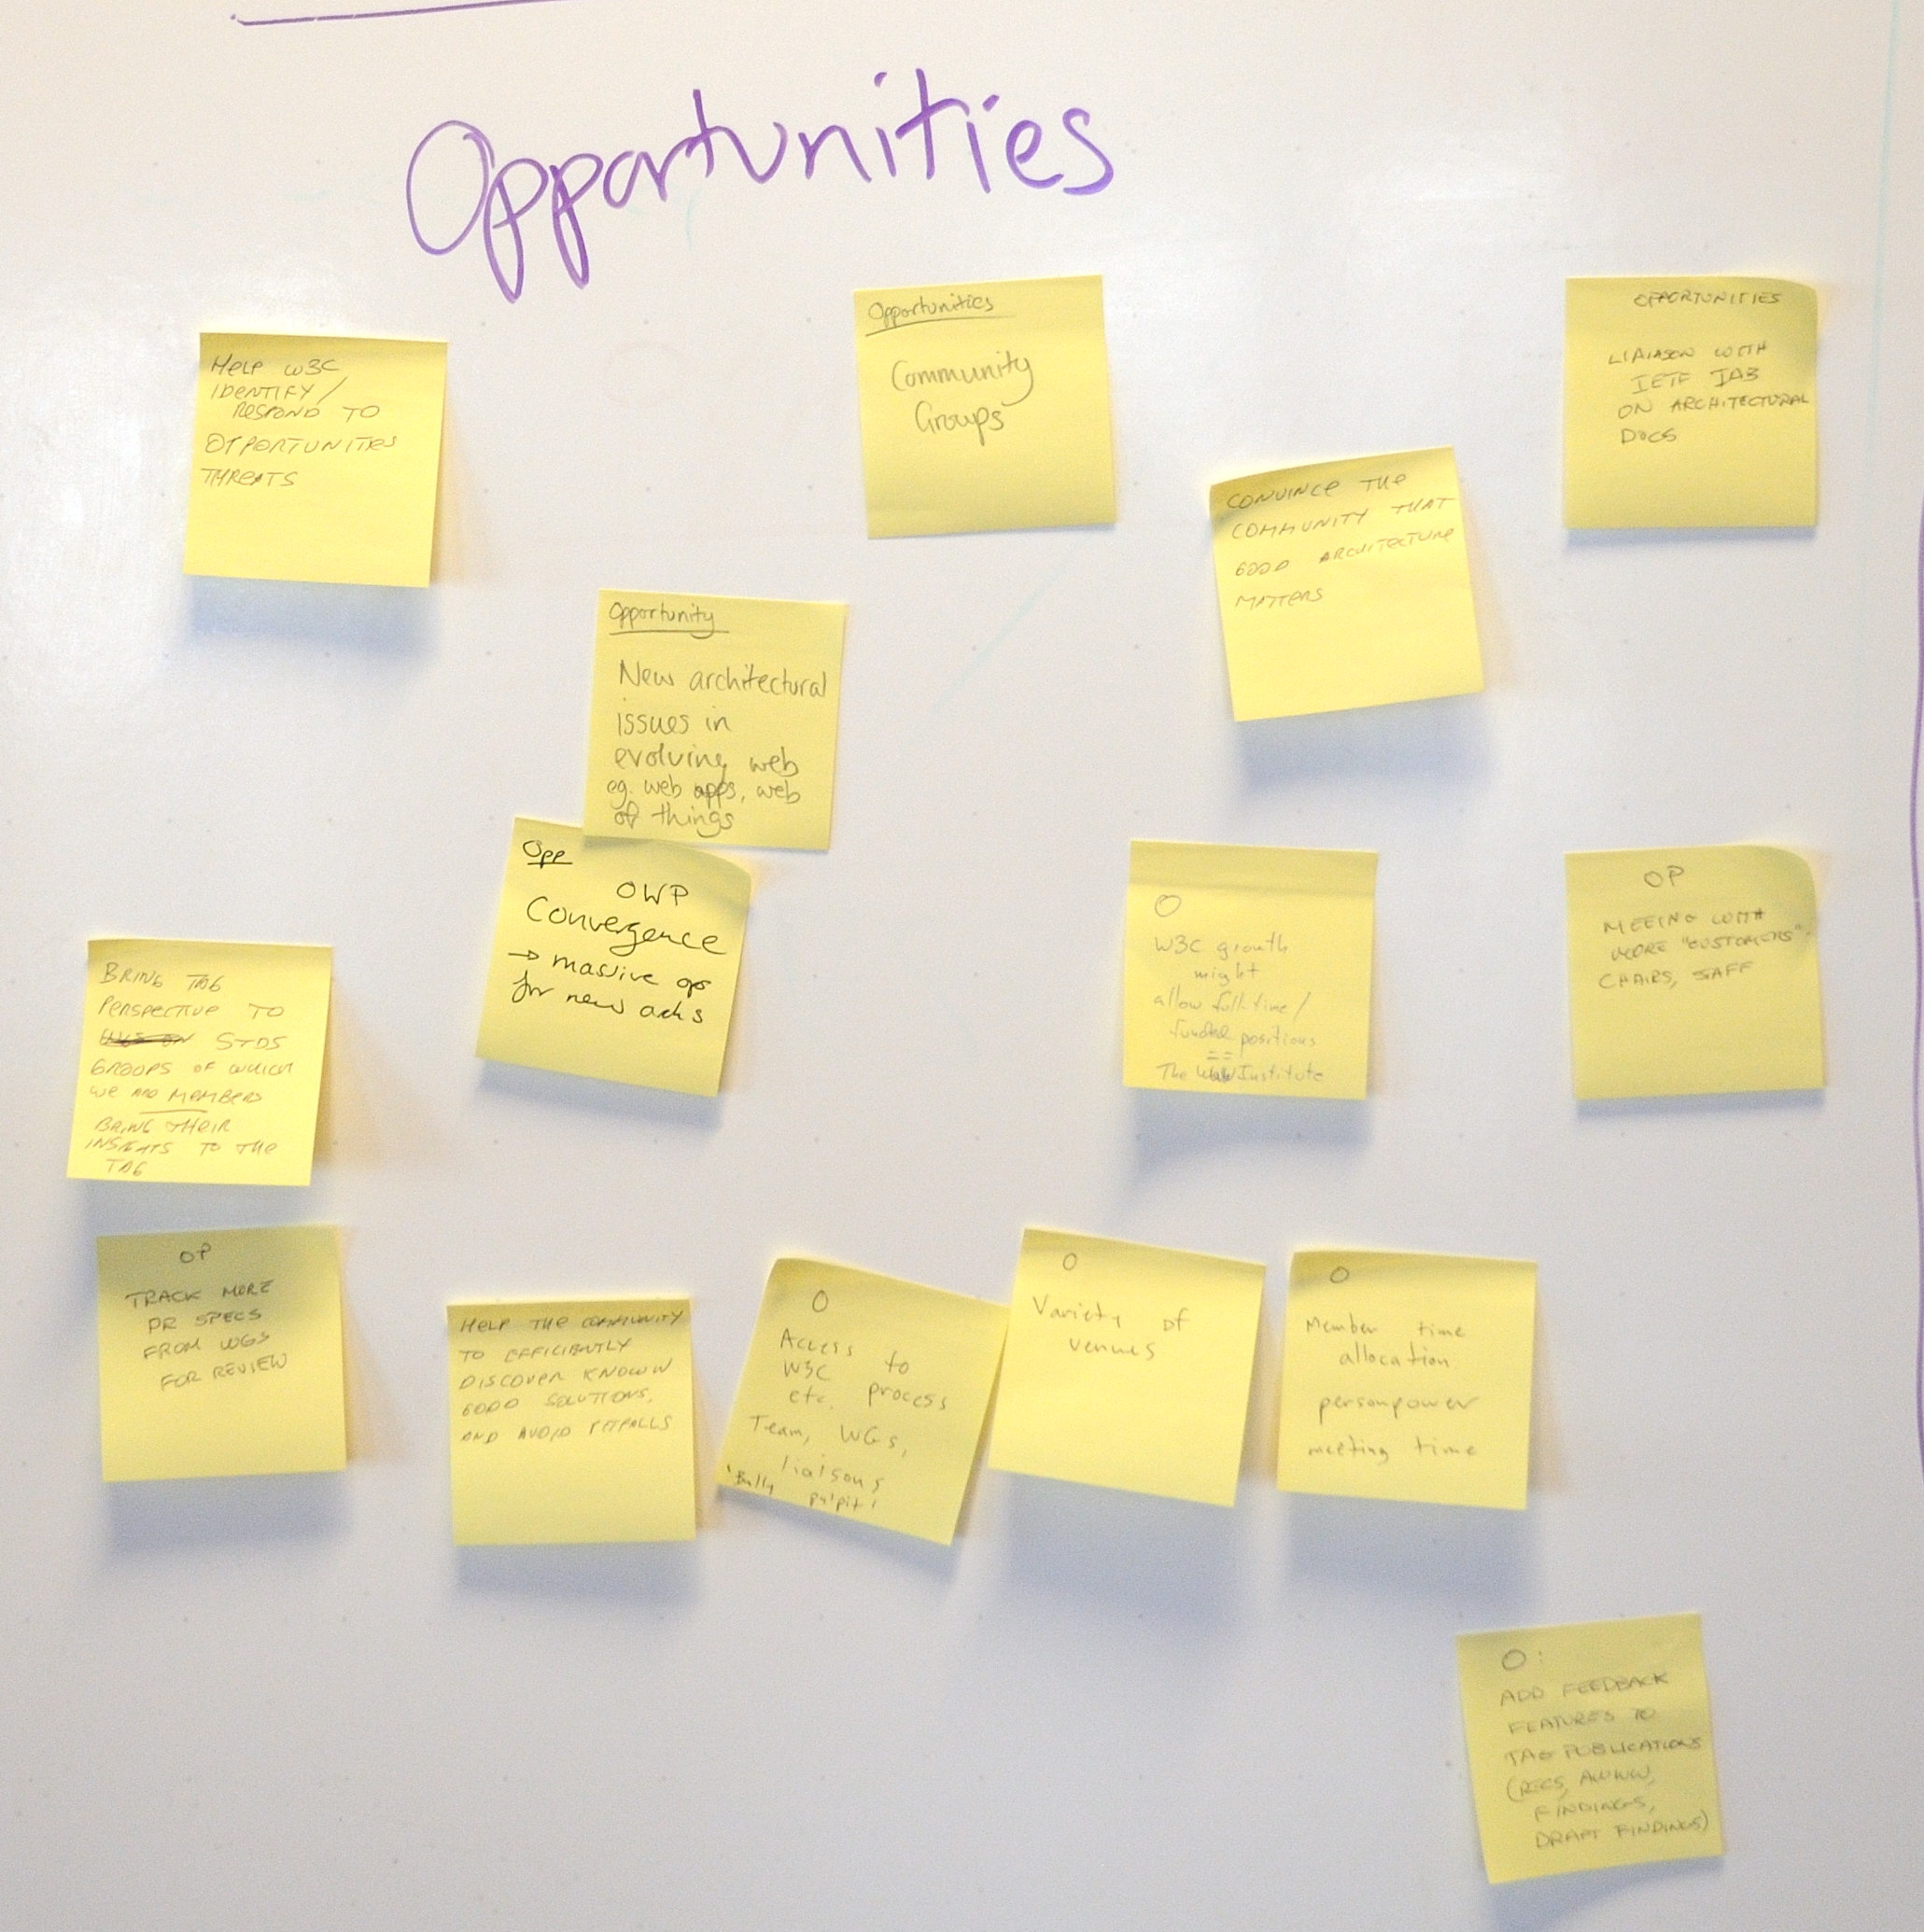 Opportunities
HELP W3C
IDENTIFY/
RESPOND TO
OPPORTUNITIES
THREATS
Opportunities
Community
Groups
OPPORTUNITIES
LIAIASON WITH
IETF IAB
ON ARCHITECTURAL
DOCS
CONVINCE THE
COMMUNITY THAT
GOOD ARCHITECTURE
MATTERS
Opportunity
New architectural
issues in
evolving web
eg. web apps, web
of things
Opp
OWP
Convergence
→ massive op
for new
O
W3C growth
might
allow full-time/
funded positions
==
The Institute
OP
MEEING WITH
MORE "CUSTOMERS".
CHAIRS, STAFF
BRING TAG
PERSPECTIVE TO
STDS
GROUPS OF WHICH
WE ARE MEMBERS
BRING THEIR
INSIGHTS TO THE
TAG
OP
TRACK MORE
PR SPECS
FROM WGS
FOR REVIEW
HELP THE COMMUNITY
TO EFFICIENTLY
DISCOVER KNOWN
GOOD SOLUTIONS,
AND AVOID PITFALLS
O
Access to
W3C
etc. process
Team, WGs,
liaisons
'Bully pulpit'
O
Variety of
venues
O
Member time
allocation
personpower
meeting time
O:
ADD FEEDBACK
FEATURES TO
TAG PUBLICATIONS
(RECS, AWWW,
FINDINGS,
DRAFT FINDINGS)